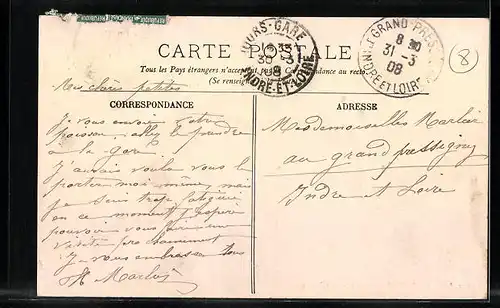 CARTE POSTALE
Tous les Pays étrangers n'acceptent pas la Correspondance au recto
(Se renseigner
TOURS-GARE
30 -3
08
INDRE-ET-LOIRE
GRAND-PRES
8 30
31 -3
08
INDRE ET LOIRE
8
CORRESPONDANCE
Mes chères petites
Je vous envoie votre
poisson, allez le prendre
à la gare.
J'aurais voulu vous le
porter moi même, mais
je suis trop fatiguée
en ce moment j'espère
pouvoir vous faire une
visite prochainement
Je vous embrasse tous
ADRESSE
Mesdemoiselles
au grand pressigny
Indre et Loire